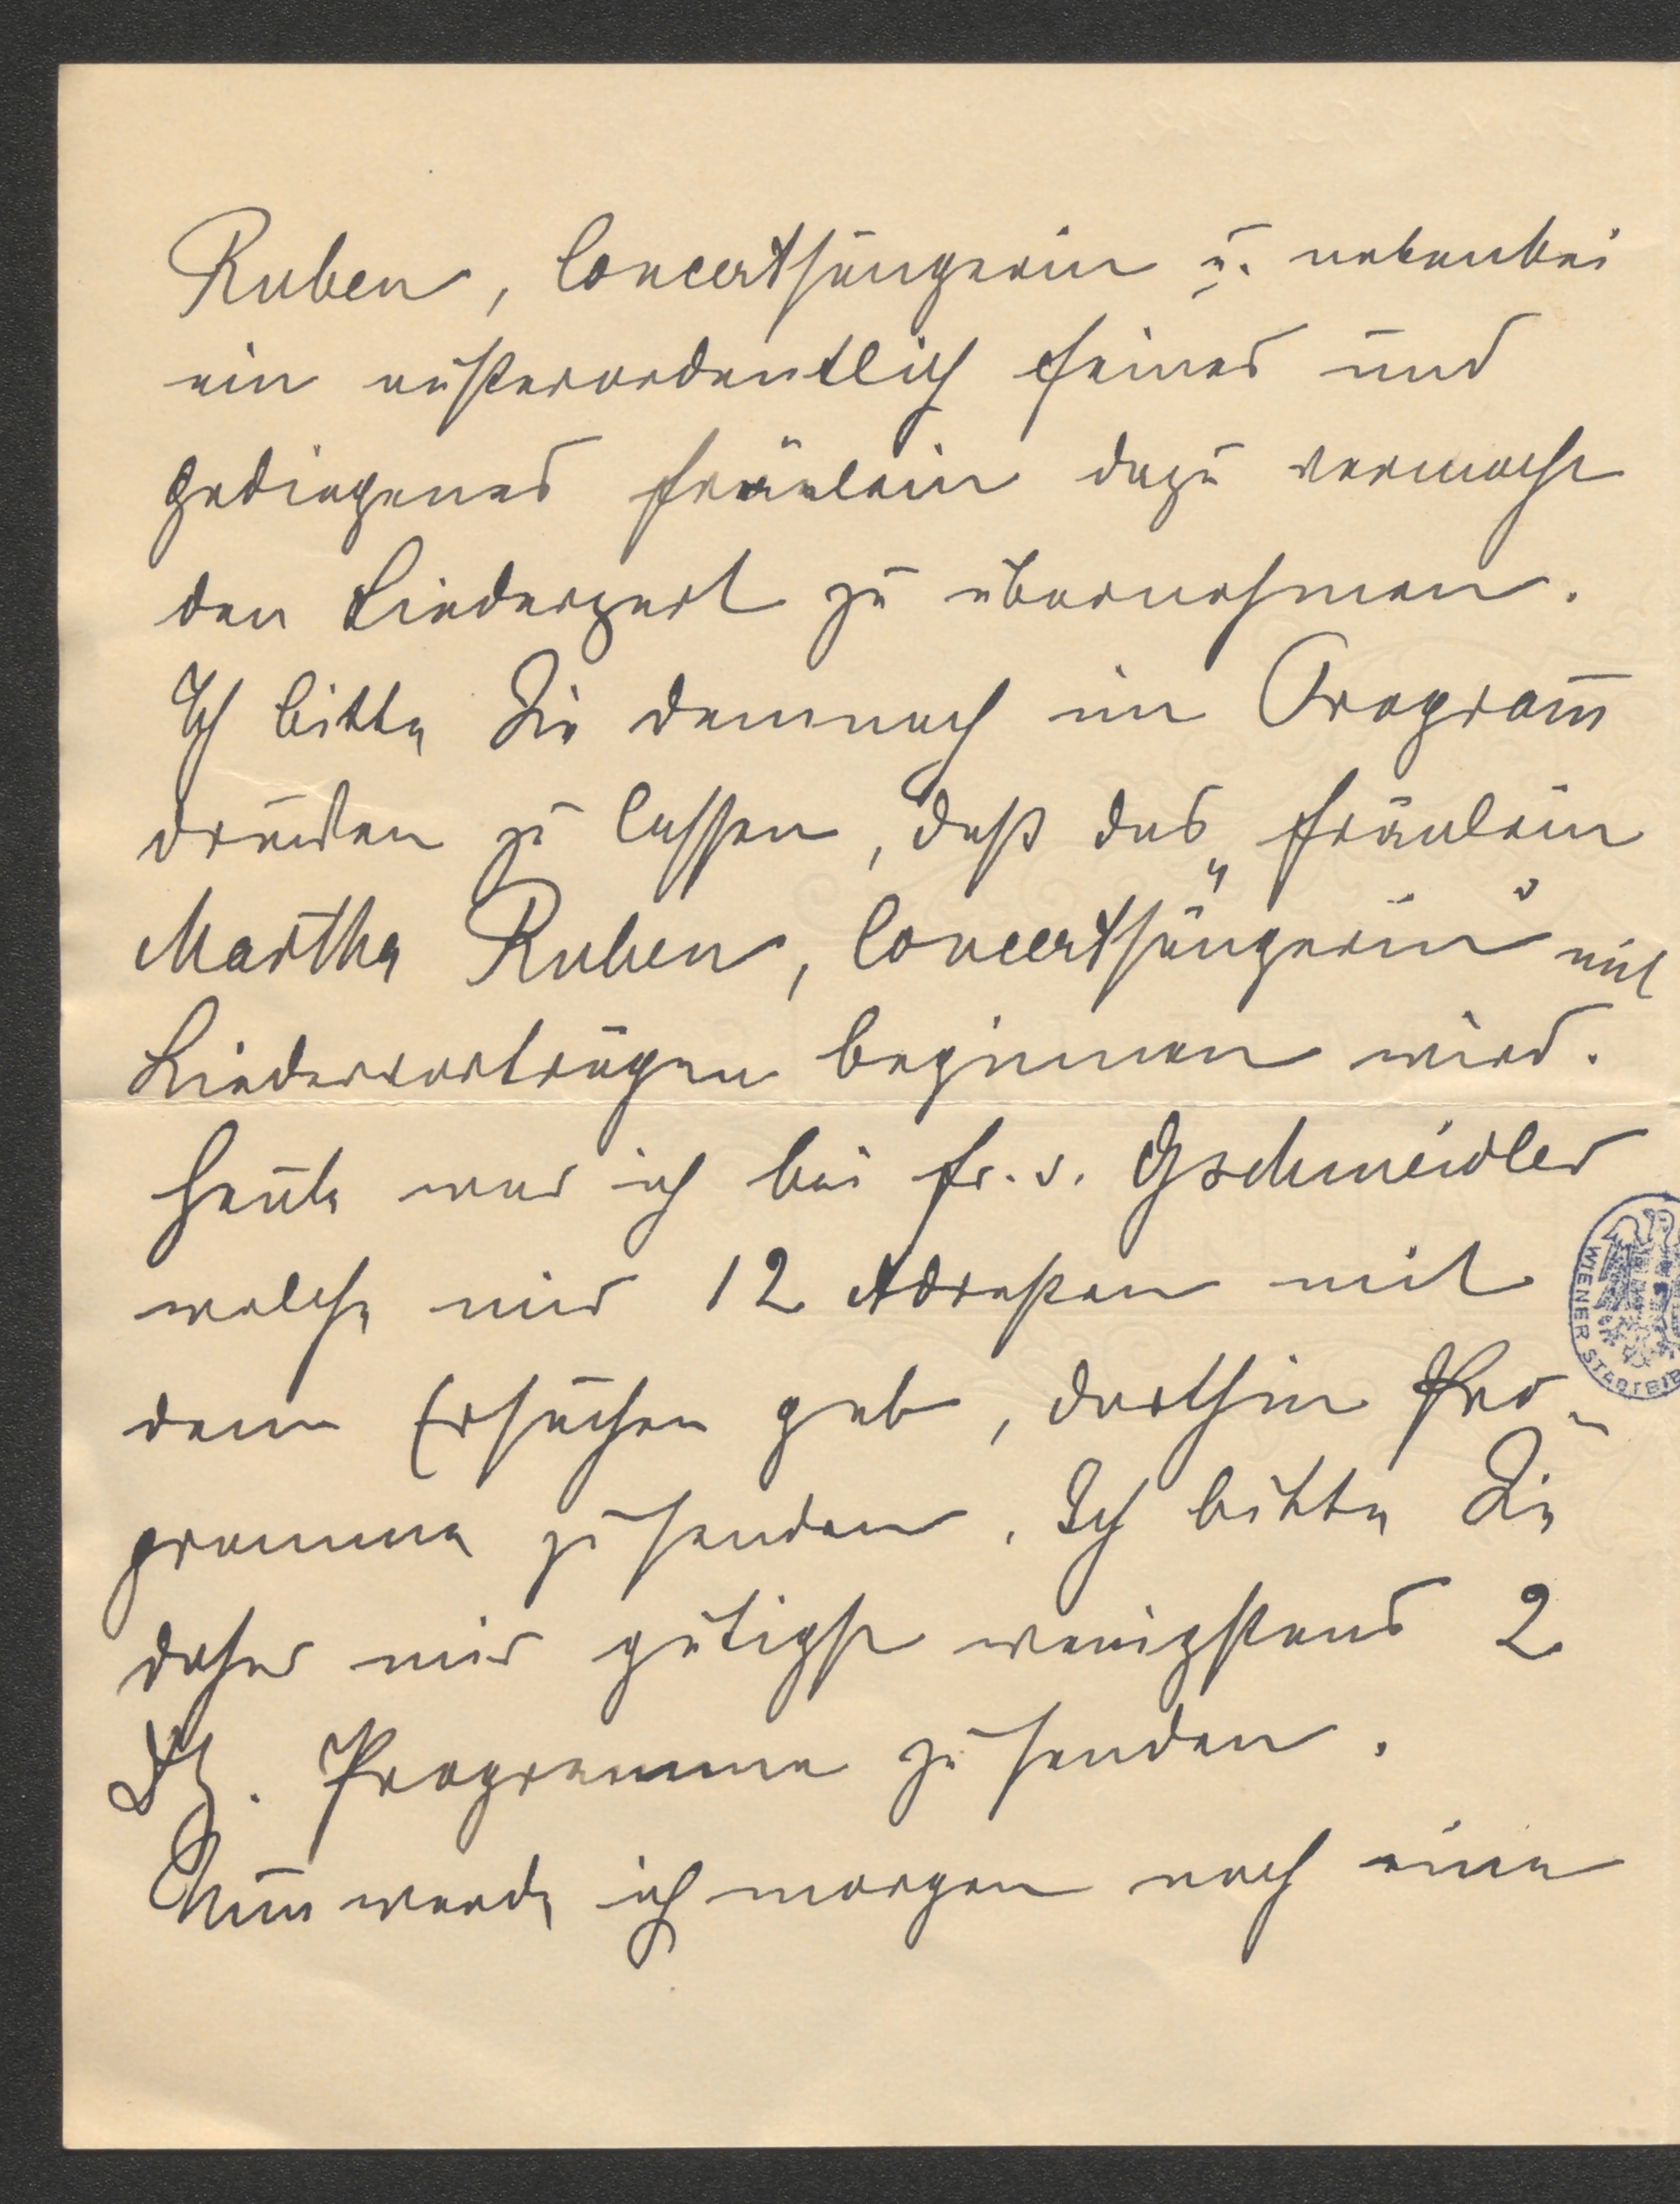 Ruben, Concertsängerin u. nebenbei
ein außerordentlich feines und
gediegenes Fräulein dazu vermocht
den Liederpart zu übernehmen.
Ich bitte Sie demnach im Program̅
drucken zu lassen, daß das „Fräulein
Martha Ruben, Concertsängerin" mit
Liedervorträgen beginnen wird.
Heute war ich bei Fr. v. Gschmeidler
welche mir 12 Adreßen mit
dem Ersuchen gab, dorthin Pro-
gramme zu senden. Ich bitte Sie
daher mir gütigst wenigstens 2
Dtz. Programme zu senden.
Nun werde ich morgen noch eine
WIENER STADTBIB